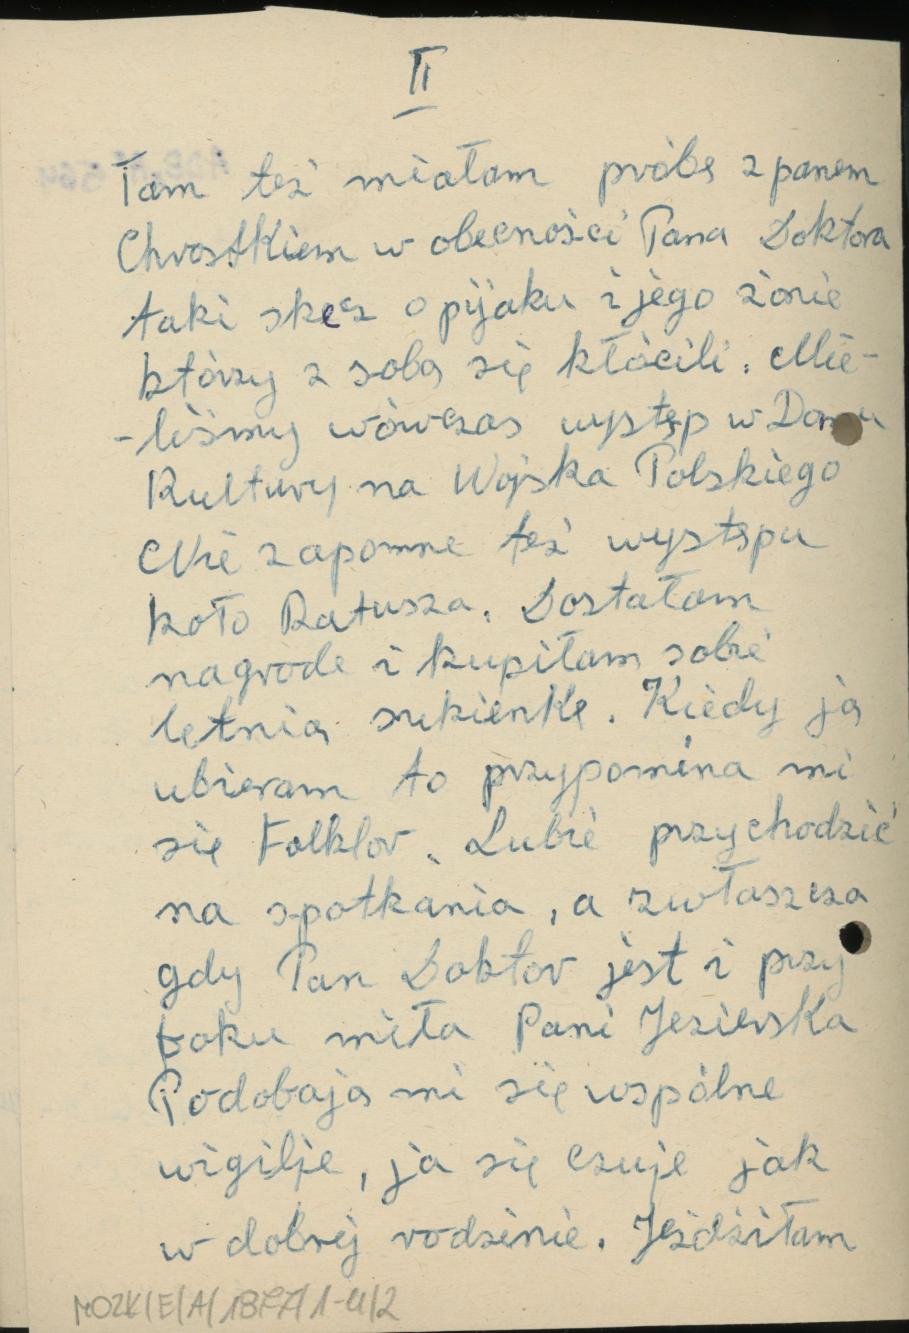 II
Tam też miałam próbę z panem
Chrostkiem w obecności Pana Doktora
taki skecz o pijaku i jego żonie
którzy z sobą się kłócili. Mie-
-liśmy wówczas występ w Domu
Kultury na Wojska Polskiego
Nie zapomne też występu
koło Ratusza. Dostałam
nagrode i kupiłam sobie
letnią sukienkę. Kiedy ją
ubieram to przypomina mi
się Folklor. Lubie przychodzić
na spotkania, a zwłaszcza
gdy Pan Doktor jest i przy
boku miła Pani Jezierska
Podobają mi się wspólne
wigilje, ja się czuje jak
w dobrej rodzinie. Jeździłam
MOZK/E/A/1877/1-4/2